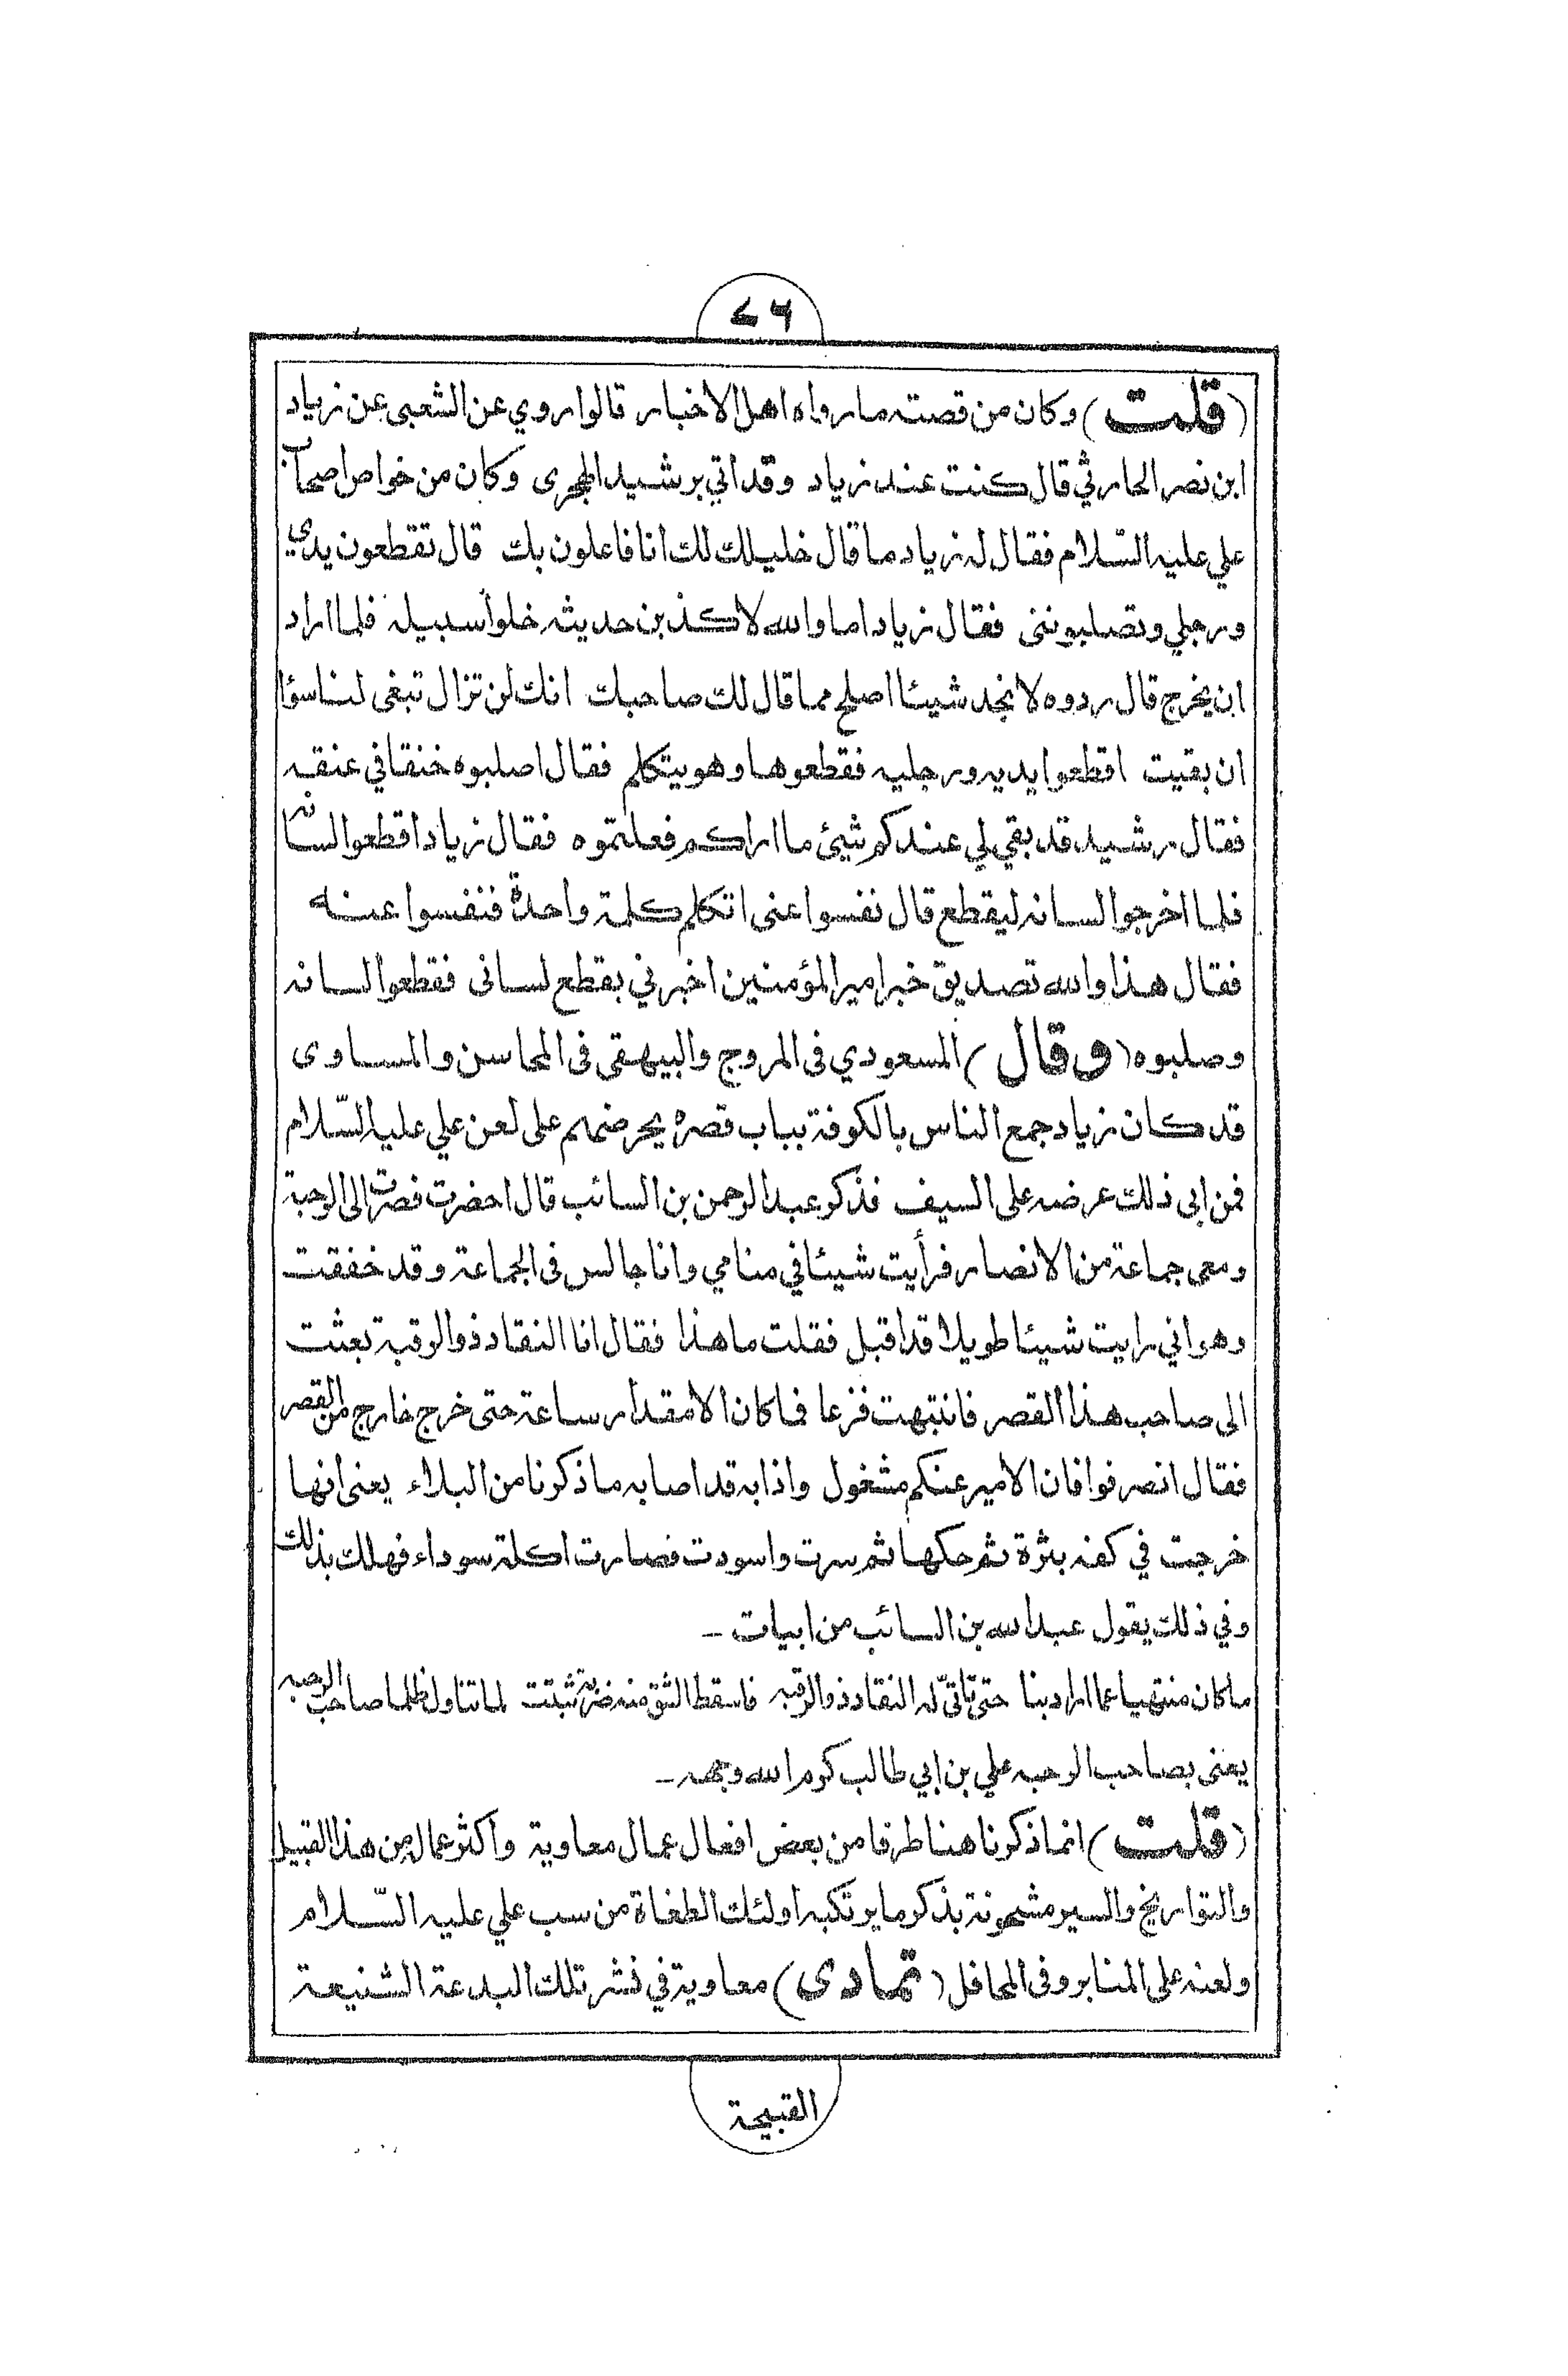 ٧٦
(قلت) وكان من قصته ما رواه اهل الاخبار قالوا روي عن الشعبى عن زياد
ابن نصر الحارثي قال كنت عند زياد وقد اتي برشيد الهجرى وكان من خواص اصحاب
علي عليه السّلام فقال له زياد ما قال خليلك لك انا فاعلون بك قال تقطعون يدي
ورجلي وتصلبوننى فقال زياد اما والله لاكذبن حديثه خلوا سبيله فلما اراد
ان يخرج قال ردوه لا نجد شيئا اصلح مما قال لك صاحبك انك لن تزال تبغى لنا سؤا
ان بقيت اقطعوا يديه ورجليه فقطعوها وهو يتكلم فقال اصلبوه خنقا في عنقه
فقال رشيد قد بقي لي عندكم شيئ ما اراكم فعلتموه فقال زياد اقطعوا لسانه
فلما اخرجوا لسانه ليقطع قال نفسوا عنى اتكلم كلمة واحدة فنفسوا عنه
فقال هذا والله تصديق خبر امير المؤمنين اخبرني بقطع لسانى فقطعوا لسانه
وصلبوه (وقال) المسعودي فى المروج والبيهقى فى المحاسن والمساوى
قد كان زياد جمع الناس بالكوفة بباب قصره يحرضهم على لعن علي عليه السّلام
فمن ابى ذلك عرضه على السيف فذكر عبد الرحمن بن السائب قال احضرت فصرت الى الرحبة
ومعى جماعة من الانصار فرأيت شيئا في منامي وانا جالس فى الجماعة وقد خفقت
وهو اني رايت شيئا طويلا قد اقبل فقلت ما هذا فقال انا النقاد ذو الرقبة بعثت
الى صاحب هذا القصر فانتبهت فزعا فما كان الا مقدار ساعة حتى خرج خارج من القصر
فقال انصرفوا فان الامير عنكم مشغول واذا به قد اصابه ما ذكرنا من البلاء يعنى انها
خرجت في كفه بثرة ثم حكها ثم سرت واسودت فصارت اكلة سوداء فهلك بذلك
وفي ذلك يقول عبد الله بن السائب من ابيات –
ما كان منتهيا عما اراد بنا حتى تأتّى له النقاد ذو الرقبه فاسقط الشق منه ضربة ثبتت لما تناول ظلما صاحب الرحبه
يعنى بصاحب الرحبه علي بن ابي طالب كرم الله وجهه –
(قلت) انما ذكرنا هنا طرفا من بعض افعال عمال معاوية واكثر عماله من هذا القبيل
والتواريخ والسير مشحونة بذكر ما يرتكبه اولئك الطغاة من سب علي عليه السّلام
ولعنه على المنابر وفى المحافل (تمادى) معاوية في نشر تلك البدعة الشنيعة
القبيحة